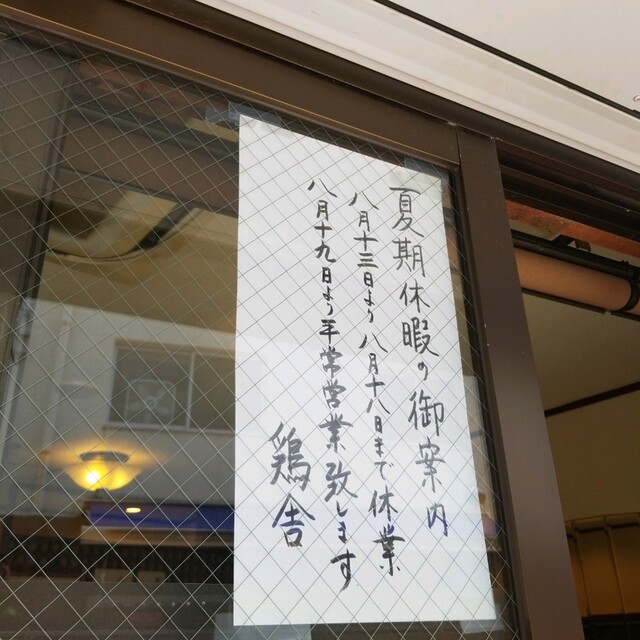 夏期休暇の御案内
八月十三日より八月十八日まで休業
八月十九日より平常営業致します
鶏舎